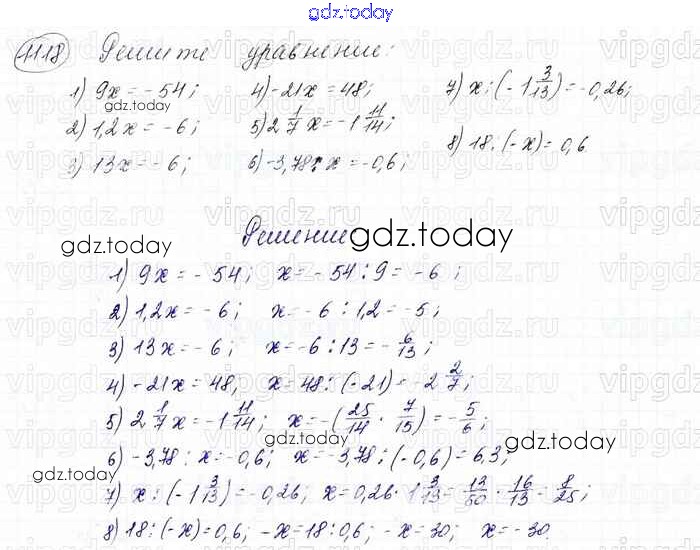 gdz.today
1118 Решите уравнение:
1) 9x = -54; 4) -21x = 48; 7) x : (-1 3/13) = -0,26;
gdz.today
2) 1,2x = -6; 5) 2 1/7 x = -1 11/14; 8) 18 : (-x) = 0,6
3) 13x = -6; 6) -3,78 : x = -0,6;
Решение
gdz.today gdz.today
1) 9x = -54; x = -54 : 9 = -6;
2) 1,2x = -6; x = -6 : 1,2 = -5;
3) 13x = -6; x = -6 : 13 = -6/13;
4) -21x = 48; x = 48 : (-21) = -2 2/7;
5) 2 1/7 x = -1 11/14; x = -(25/14 · 7/15) = -5/6;
gdz.today gdz.today
6) -3,78 : x = -0,6; x = -3,78 : (-0,6) = 6,3;
gdz.today
7) x : (-1 3/13) = -0,26; x = 0,26 · 1 3/13 = 13/50 · 16/13 = 8/25;
8) 18 : (-x) = 0,6; -x = 18 : 0,6; -x = 30; x = -30.
gdz.today